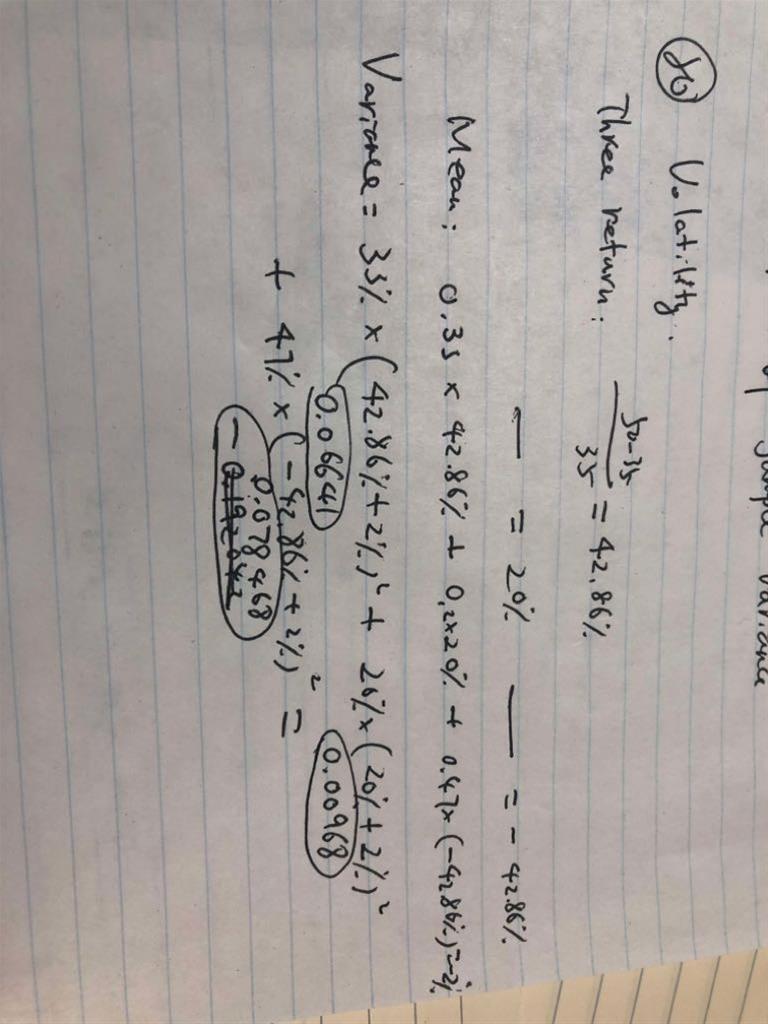 of sample variance
Volatility.
Three return: 50-35/35 = 42.86%
— = 20% — = -42.86%
Mean: 0.35 x 42.86% + 0.2x20% + 0.47x(-42.86%)=-2%
Variance = 35% x (42.86%+2%)² + 20% x (20%+2%)²
0.06641 0.00968
+ 47% x (-42.86% + 2%)² =
0.078468